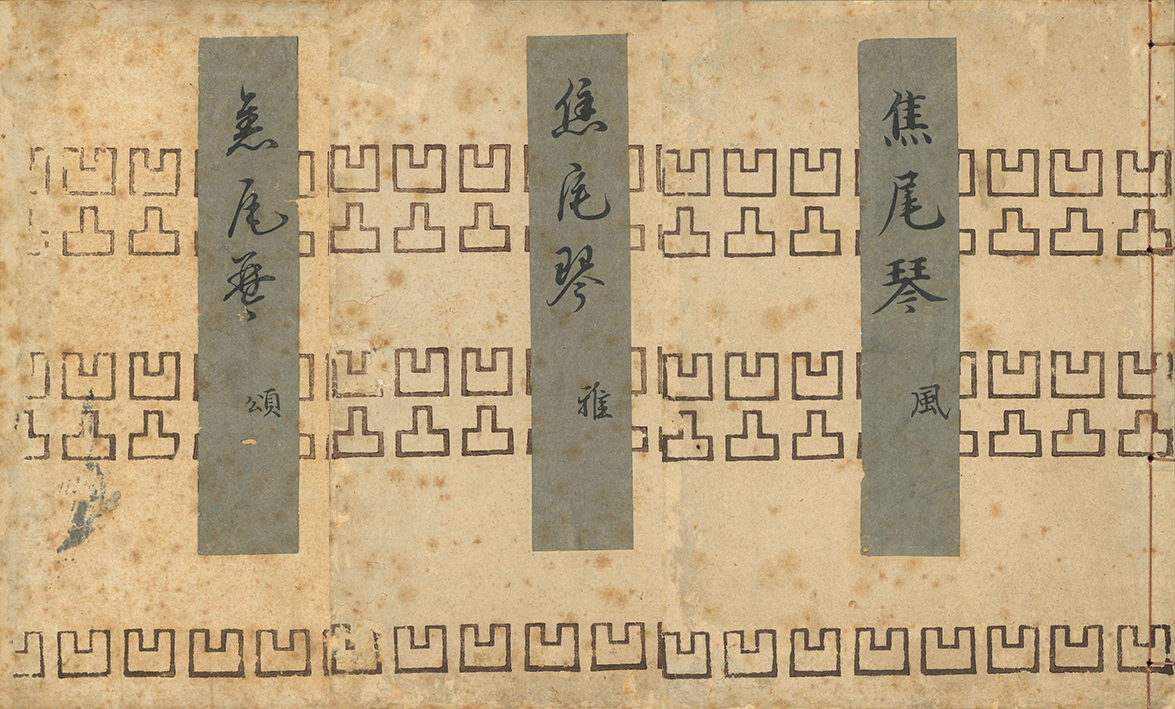 焦尾琴 風
焦尾琴 雅
焦尾琴 頌